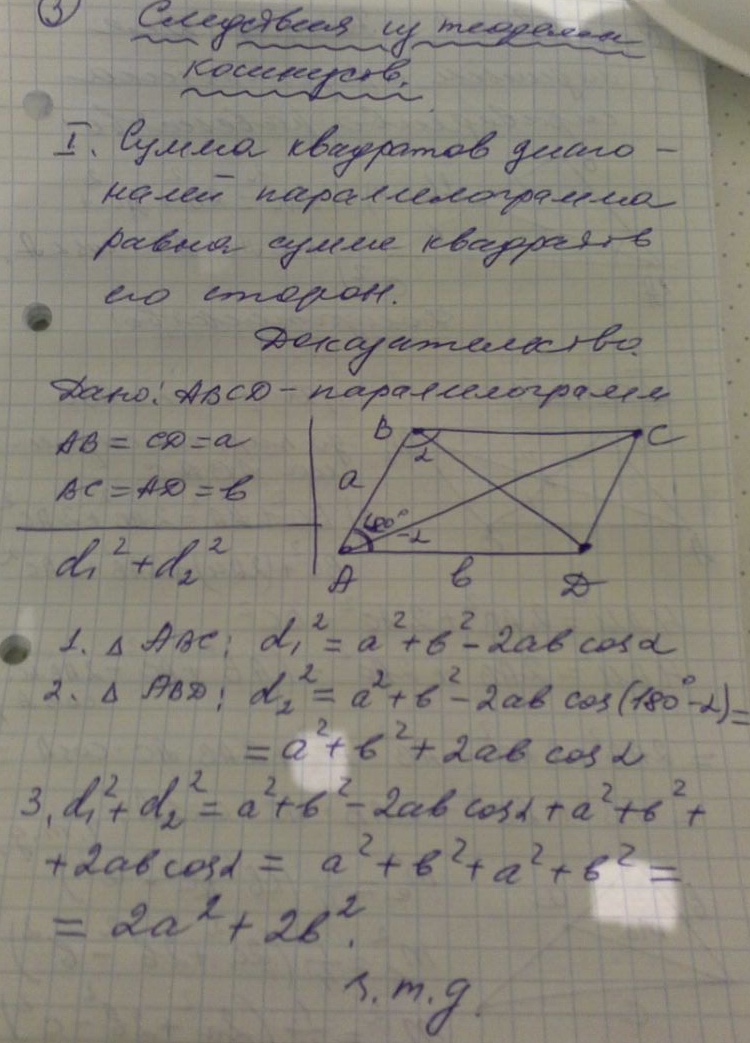 3
Следствия из теоремы
косинусов.
I. Сумма квадратов диаго-
налей параллелограмма
равна сумме квадратов
его сторон.
Доказательство.
Дано: ABCD - параллелограмм
AB = CD = a
BC = AD = b
d₁² + d₂²
B C
α
a
180°-α
A b D
1. △ ABC: d₁² = a² + b² - 2ab cos α
2. △ ABD: d₂² = a² + b² - 2ab cos (180° - α) =
= a² + b² + 2ab cos α
3. d₁² + d₂² = a² + b² - 2ab cos α + a² + b² +
+ 2ab cos α = a² + b² + a² + b² =
= 2a² + 2b².
ч.т.д.